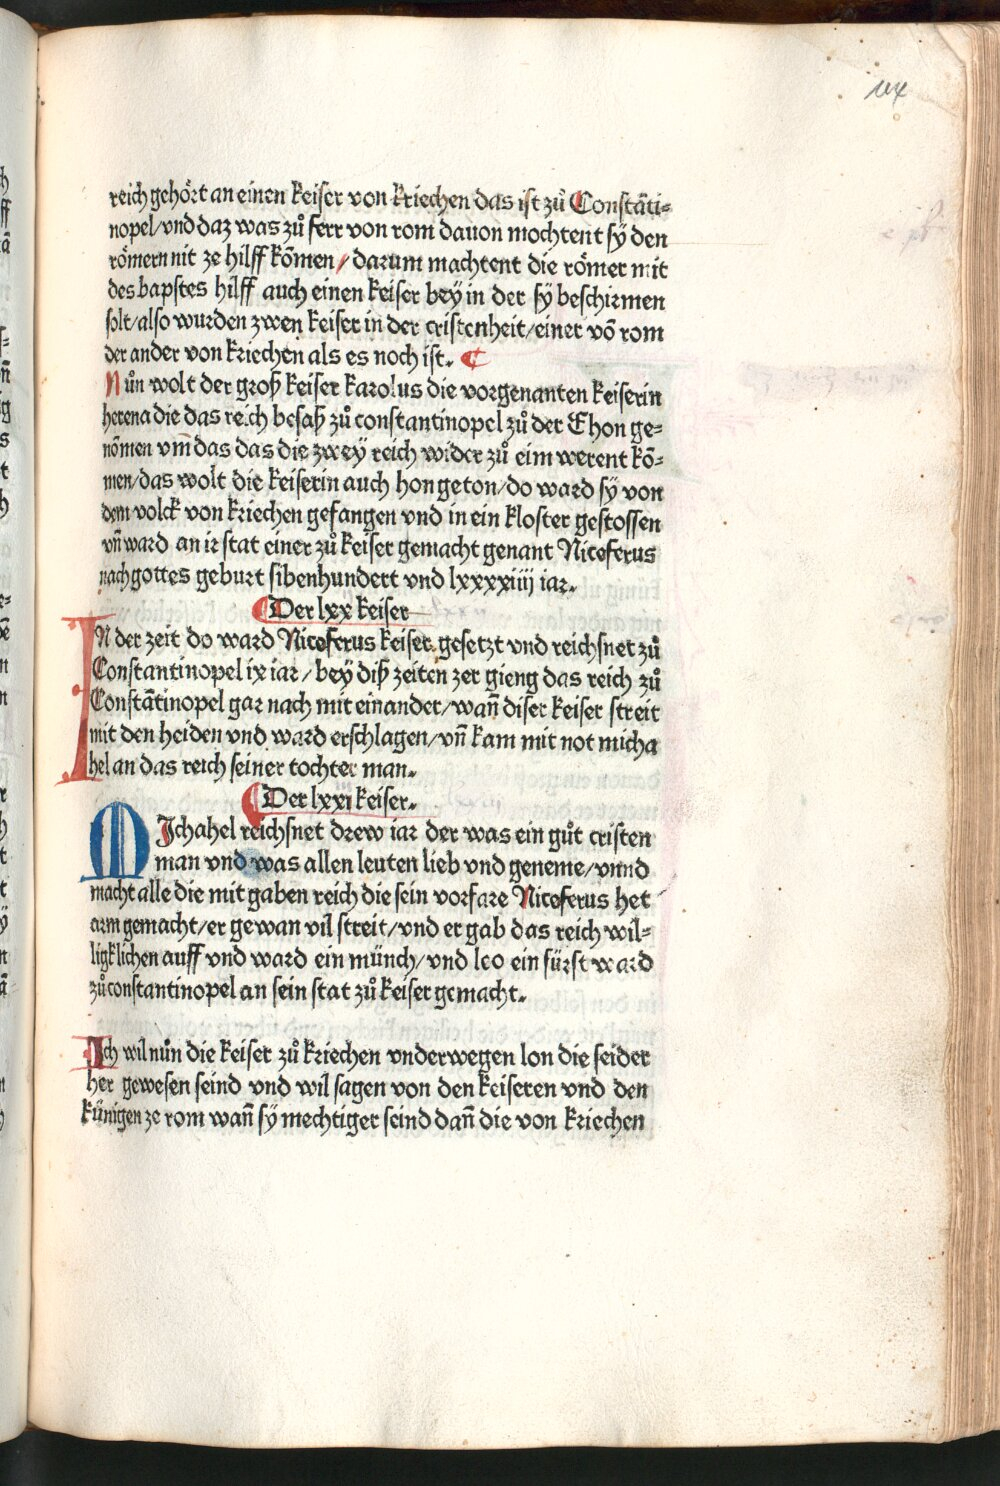 reich gehört an einen keiser von kriechen das ist zů Constāti⸗
nopel/vnd daz was zů ferr von rom dauon mochtent sÿ den
römern nit ze hilff kōmen/darum machtent die römer mit
des bapstes hilff auch einen keiser beÿ in der sÿ beschirmen
solt/also wurden zwen keiser in der cristenheit/einer vō rom
der ander von kriechen als es noch ist.
Nůn wolt der groß keiser karolus die vorgenanten keiserin
herena die das reich besaß zů constantinopel zů der Ehon ge⸗
nōmen vm̄ das das die zweÿ reich wider zů eim werent kō⸗
men/das wolt die keiserin auch hon geton/do ward sÿ von
dem volck von kriechen gefangen vnd in ein kloster gestossen
vn̄ ward an ir stat einer zů keiser gemacht genant Niceferus
nach gottes geburt sibenhundert vnd lxxxxiiij iar.
Der lxx keiser
IN der zeit do ward Niceferus keiser gesetzt vnd reichsnet zů
Constantinopel ix iar/beÿ diß zeiten zer gieng das reich zů
Constātinopel gar nach mit einander/wan̄ diser keiser streit
mit den heiden vnd ward erschlagen/vn̄ kam mit not micha
hel an das reich seiner tochter man.
Der lxxi keiser.
MIchahel reichsnet drew iar der was ein gůt cristen
man vnd was allen leuten lieb vnd geneme/vnnd
macht alle die mit gaben reich die sein vorfare Niceferus het
arm gemacht/er gewan vil streit/vnd er gab das reich wil⸗
ligklichen auff vnd ward ein münch/vnd leo ein fürst ward
zů constantinopel an sein stat zů keiser gemacht.
Ich wil nůn die keiser zů kriechen vnderwegen lon die seider
her gewesen seind vnd wil sagen von den keiseren vnd den
künigen ze rom wan̄ sÿ mechtiger seind dan̄ die von kriechen